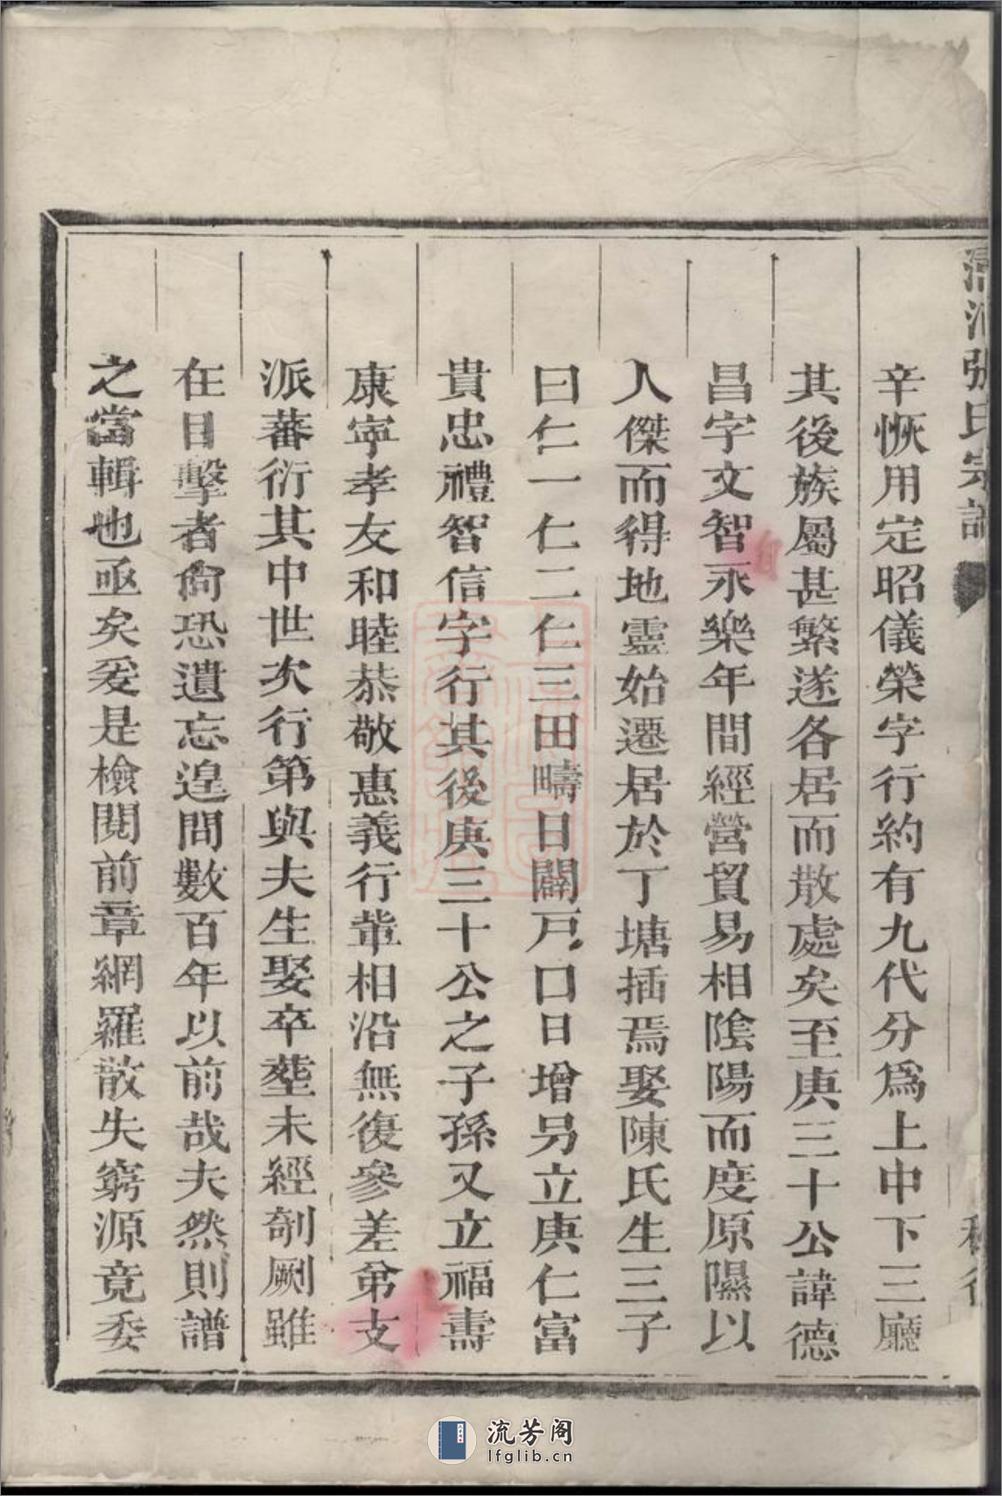 清河張氏宗譜
辛恢用定昭儀榮字行約有九代分為上中下三廳
其後族屬甚繁遂各居而散處矣至庚三十公諱德
昌字文智永樂年間經營貿易相陰陽而度原隰以
人傑而得地靈始遷居於丁塘插焉娶陳氏生三子
曰仁一仁二仁三田疇日闢戶口日增另立庚仁富
貴忠禮智信字行其後庚三十公之子孫又立福壽
康寧孝友和睦恭敬惠義行軰相沿無復參差第支
派蕃衍其中世次行第與夫生娶卒塟未經剞劂雖
在目擊者尙恐遺忘遑問數百年以前哉夫然則譜
之當輯也亟矣爰是檢閱前章網羅散失窮源竟委
流芳阁
lfglib.cn